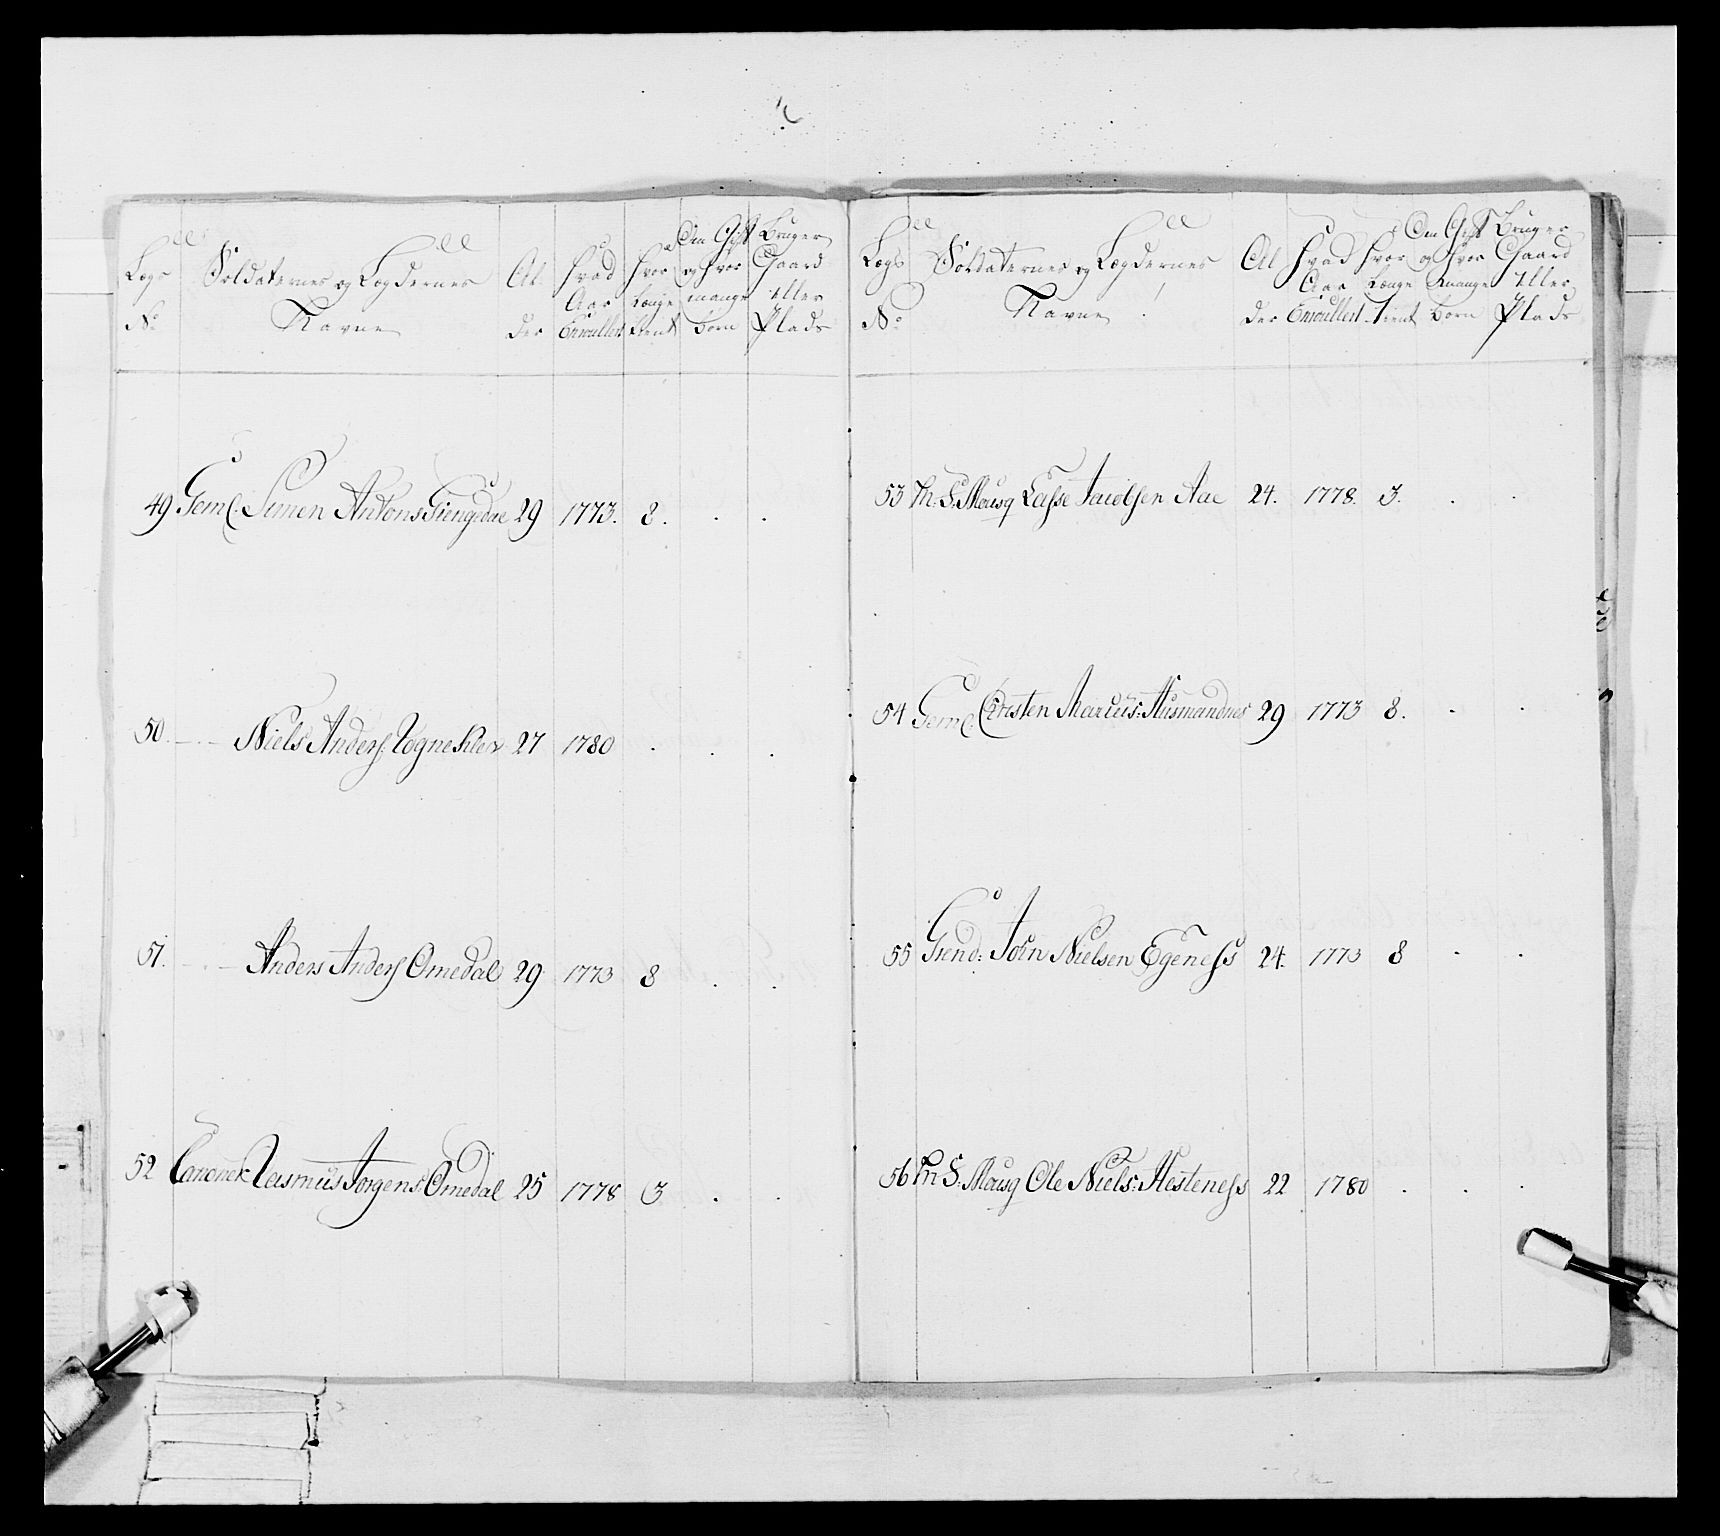 Lægs
No
Soldaternes og Lægdernes
Navne
Al
der
Hvad
Aar
Enroullert
Hvor
Længe
tient
Om Gift
og Hvor
mange
børn
Bruger
Gaard
Eller
Plads
49 Geml. Simen Antons Giengedal 29 1773. 8. . .
50. — Niels Anders: Rogneklev 27 1780 . . .
51. — Anders Anders Omedal 29 1773 8 . .
52 Rasmus Jorgens: Omedal 25 1778 3 . .
Lægs
No
Soldaternes og Lægdernes
Navne
Al
der
Hvad
Aar
Enroullert
Hvor
Længe
tient
Om Gift
og Hvor
mange
børn
Bruger
Gaard
Eller
Plads
53 M: S: Mousq Lasse Jacobsen Aae 24. 1778. 3. . .
54 Geml. Christen Marcus: Husmandnes 29 1773 8. . .
55 Grend: John Nielsen Egeness 24. 1773 8 . .
56 M: S: Mousq Ole Niels: Hesteness 22 1780 . . .